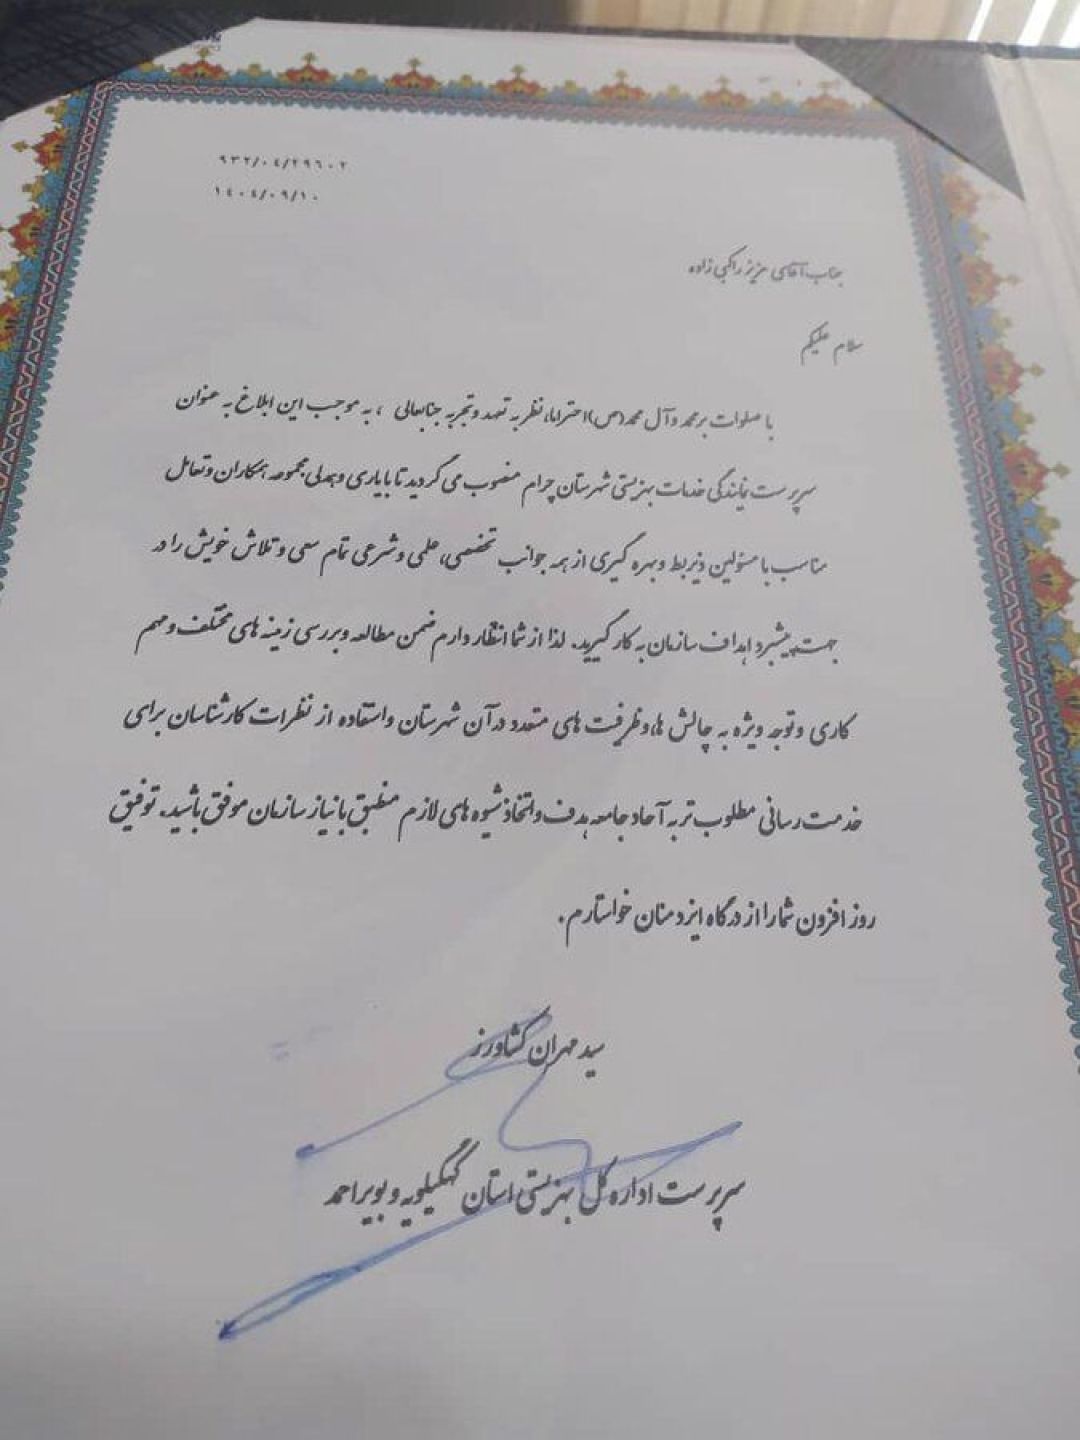 ۹۳۲/۰۴/۲۹۶۰۲
۱۴۰۴/۰۹/۱۰
جناب آقای عزیز راکی زاده
سلام علیکم
با صلوات بر محمد و آل محمد(ص)احتراما، نظر به تعهد و تجربه جنابعالی ، به موجب این ابلاغ به عنوان
سرپرست نمایندگی خدمات بهزیستی شهرستان چرام منصوب می گردید تا با یاری و همدلی مجموعه همکاران و تعامل
مناسب با مسئولین ذیربط و بهره گیری از همه جوانب تخصصی، علمی و شرعی تمام سعی و تلاش خویش را در
جهت پیشبرد اهداف سازمان به کار گیرید. لذا از شما انتظار دارم ضمن مطالعه و بررسی زمینه های مختلف و مهم
کاری و توجه ویژه به چالش ها و ظرفیت های متعدد در آن شهرستان و استفاده از نظرات کارشناسان برای
خدمت رسانی مطلوب تر به آحاد جامعه هدف و اتخاذ شیوه های لازم منطبق با نیاز سازمان موفق باشید. توفیق
روز افزون شما را از درگاه ایزد منان خواستارم.
سید مهران کشاورز
سرپرست اداره کل بهزیستی استان کهگیلویه و بویراحمد